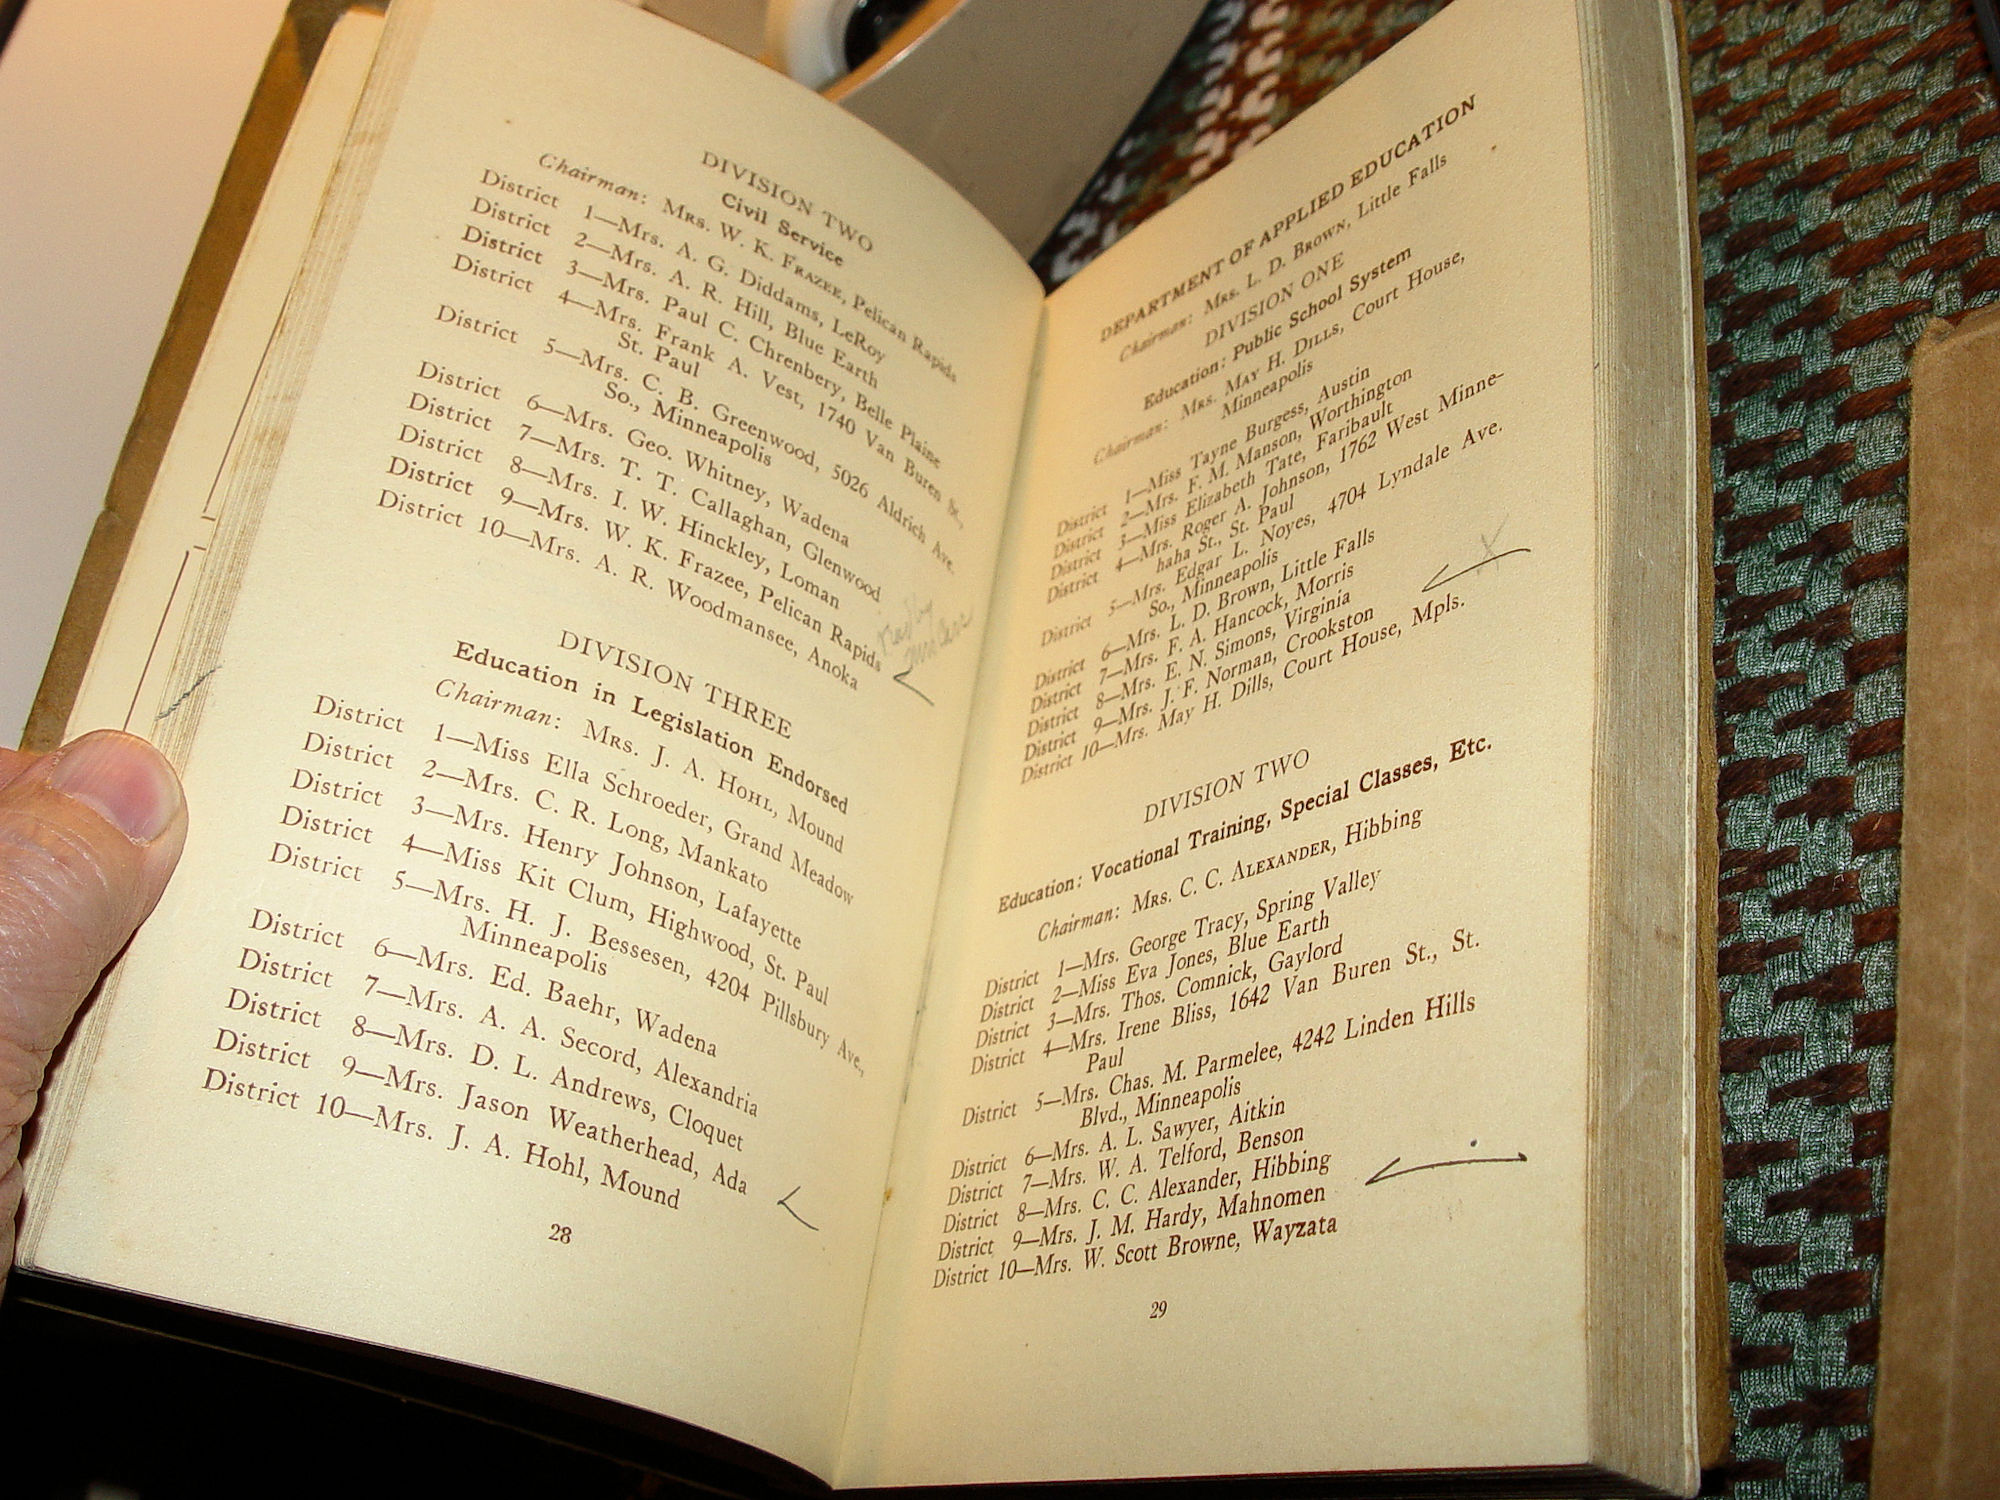 DIVISION TWO
Civil Service
Chairman: Mrs. W. K. Frazee, Pelican Rapids
District 1—Mrs. A. G. Diddams, LeRoy
District 2—Mrs. A. R. Hill, Blue Earth
District 3—Mrs. Paul C. Chrenbery, Belle Plaine
District 4—Mrs. Frank A. Vest, 1740 Van Buren St.,
St. Paul
District 5—Mrs. C. B. Greenwood, 5026 Aldrich Ave.
So., Minneapolis
District 6—Mrs. Geo. Whitney, Wadena
District 7—Mrs. T. T. Callaghan, Glenwood
District 8—Mrs. I. W. Hinckley, Loman
District 9—Mrs. W. K. Frazee, Pelican Rapids
District 10—Mrs. A. R. Woodmansee, Anoka
DIVISION THREE
Education in Legislation Endorsed
Chairman: Mrs. J. A. Hohl, Mound
District 1—Miss Ella Schroeder, Grand Meadow
District 2—Mrs. C. R. Long, Mankato
District 3—Mrs. Henry Johnson, Lafayette
District 4—Miss Kit Clum, Highwood, St. Paul
District 5—Mrs. H. J. Bessesen, 4204 Pillsbury Ave.,
Minneapolis
District 6—Mrs. Ed. Baehr, Wadena
District 7—Mrs. A. A. Secord, Alexandria
District 8—Mrs. D. L. Andrews, Cloquet
District 9—Mrs. Jason Weatherhead, Ada
District 10—Mrs. J. A. Hohl, Mound
28
DEPARTMENT OF APPLIED EDUCATION
Chairman: Mrs. L. D. Brown, Little Falls
DIVISION ONE
Education: Public School System
Chairman: Mrs. May H. Dills, Court House,
Minneapolis
District 1—Miss Tayne Burgess, Austin
District 2—Mrs. F. M. Manson, Worthington
District 3—Miss Elizabeth Tate, Faribault
District 4—Mrs. Roger A. Johnson, 1762 West Minne-
haha St., St. Paul
District 5—Mrs. Edgar L. Noyes, 4704 Lyndale Ave.
So., Minneapolis
District 6—Mrs. L. D. Brown, Little Falls
District 7—Mrs. F. A. Hancock, Morris
District 8—Mrs. E. N. Simons, Virginia
District 9—Mrs. J. F. Norman, Crookston
District 10—Mrs. May H. Dills, Court House, Mpls.
DIVISION TWO
Education: Vocational Training, Special Classes, Etc.
Chairman: Mrs. C. C. Alexander, Hibbing
District 1—Mrs. George Tracy, Spring Valley
District 2—Miss Eva Jones, Blue Earth
District 3—Mrs. Thos. Comnick, Gaylord
District 4—Mrs. Irene Bliss, 1642 Van Buren St., St.
Paul
District 5—Mrs. Chas. M. Parmelee, 4242 Linden Hills
Blvd., Minneapolis
District 6—Mrs. A. L. Sawyer, Aitkin
District 7—Mrs. W. A. Telford, Benson
District 8—Mrs. C. C. Alexander, Hibbing
District 9—Mrs. J. M. Hardy, Mahnomen
District 10—Mrs. W. Scott Browne, Wayzata
29